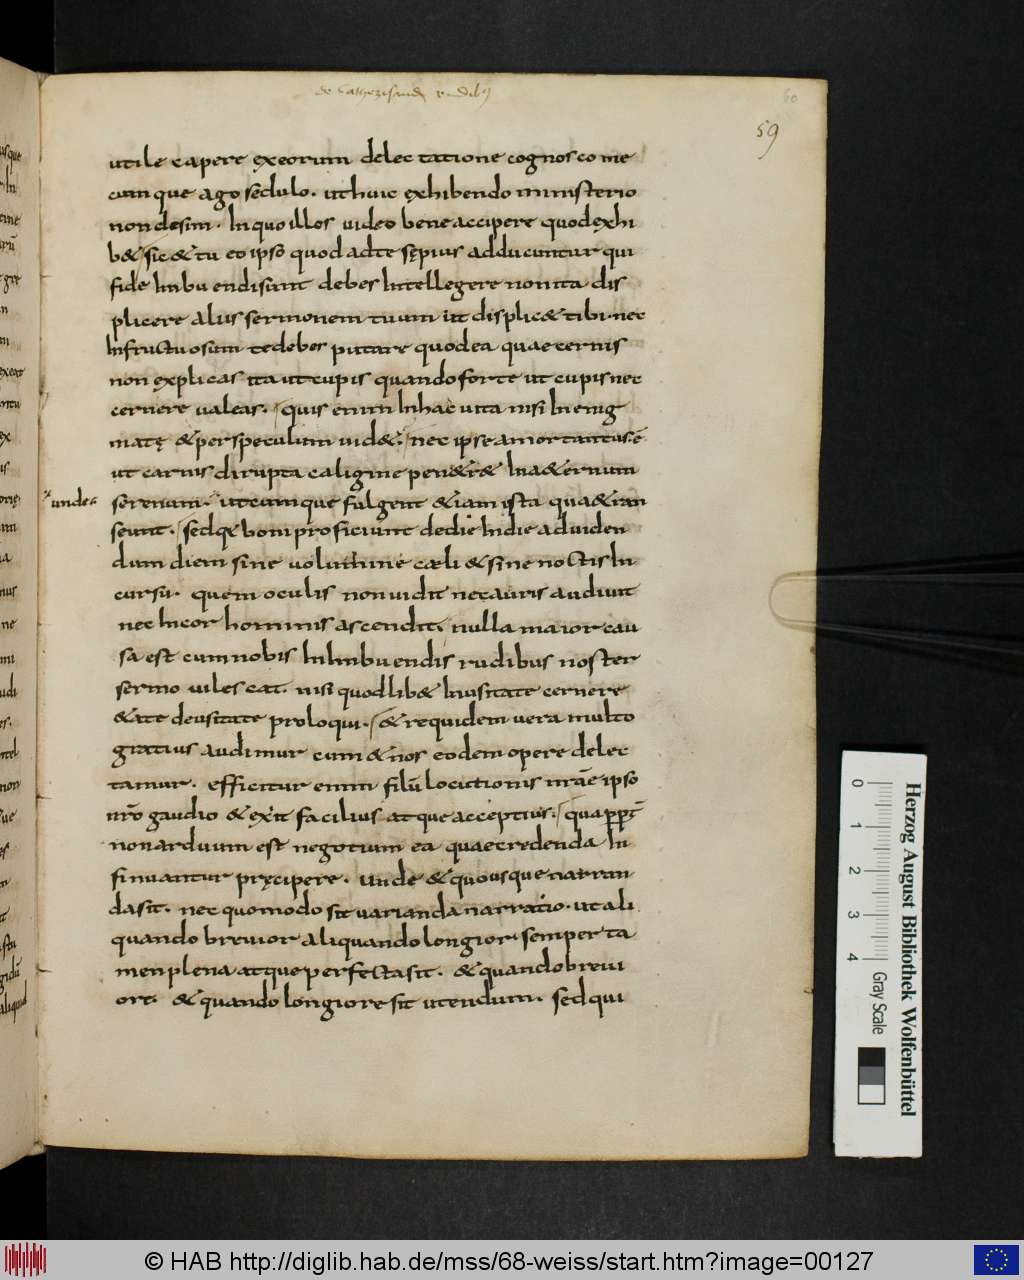 de cathezisandis rudibus
60
59
utile capere exeorum delec tatione cognosco me
cum que ago sedulo. ut huic exhibendo ministerio
non desim. In quo illos video bene accipere quod exhi
b& sic & tu eo ipso quod adte sępius adducuntur qui
fide Inbu endi sunt debes Intellegere non ita dis
plicere aliis sermonem tuum ut displic& tibi. nec
Infructuosum te debes putare quod ea quae cernis
non explicas ita ut cupis quando forte ut cupis nec
cernere valeas. quis enim In hac vita nisi In enig
matę & per speculum vid&. nec ipse amor tantus. ē
ut carnis dirupta caligine pen&r& In a&ernum
unde
serenum. utcumque fulgent & iam ista qua& ran
seunt. sed qę boni proficiunt dedie In die ad viden
dum diem sine volumine cæli & sine noctis In
cursu. quem oculis non vidit nec auris audivit
nec In cor hominis ascendit. nulla maior cau
sa est cum nobis In Inbuendis rudibus noster
sermo viles cat. nisi quod lib& Inusitate cernere
& ate deusitate proloqui. & requidem vera multo
gratius audimur cum & nos eodem opere delec
tamur. efficitur enim filū locutionis nrāe ipso
nrō gaudio & exit facilius atque acceptius. qua ppt
non arduum est negotium ea quae credenda In
sinuantur pręcipere. unde & quousque narran
da sit. nec quomodo sit varianda narratio. ut ali
quando brevior aliquando longior. semper ta
men plena atque perfecta sit. & quando brevi
ore. & quando longiore sit utendum. sed qui
0 1 2 3 4
Gray Scale
Herzog August Bibliothek Wolfenbüttel
© HAB http://diglib.hab.de/mss/68-weiss/start.htm?image=00127